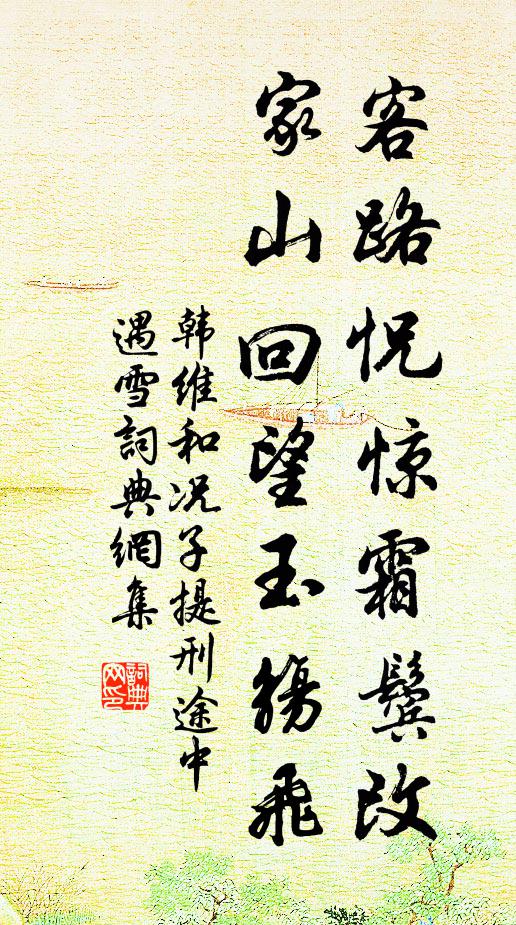 客路怳惊霜鬓改
家山回望玉觞飞
韩维和况子提刑途中
遇雪詞典網集
詞典
网印